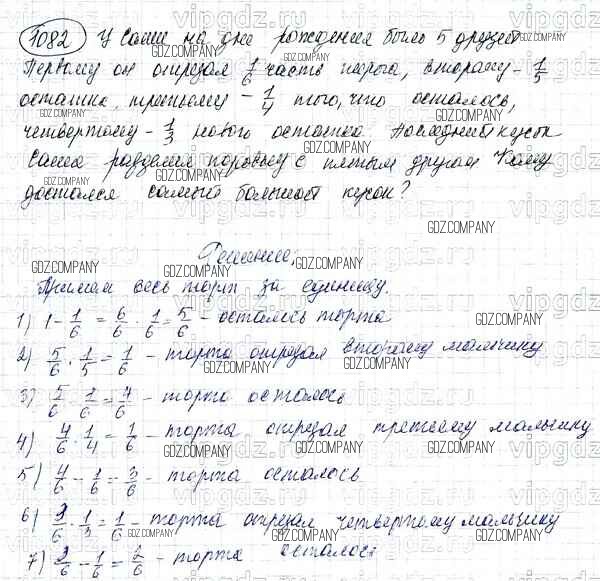 1082 У Саши на дне рождения было 5 друзей
Первому он отрезал 1/6 часть пирога, второму - 1/5
остатка, третьему - 1/4 того, что осталось,
четвертому - 1/3 нового остатка. Последний кусок
Саша разделил поровну с пятым другом Кому
достался самый большой кусок?
Решение:
Примем весь торт за единицу.
1) 1 - 1/6 = 6/6 - 1/6 = 5/6 - осталось торта
2) 5/6 · 1/5 = 1/6 - торта отрезал второму мальчику
3) 5/6 - 1/6 = 4/6 - торта осталось
4) 4/6 · 1/4 = 1/6 - торта отрезал третьему мальчику
5) 4/6 - 1/6 = 3/6 - торта осталось
6) 3/6 · 1/3 = 1/6 - торта отрезал четвертому мальчику
7) 3/6 - 1/6 = 2/6 - торта осталось